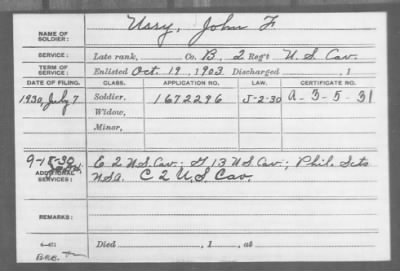 NAME OF SOLDIER: Usry, John F
SERVICE: Late rank, Co. B, 2 Reg't U.S. Cav.
TERM OF SERVICE: Enlisted Oct. 19, 1903 Discharged , 1
DATE OF FILING. CLASS. APPLICATION NO. LAW. CERTIFICATE NO.
1930, July 7 Soldier, 1672296 J-2-30 A-3-5-31
Widow,
Minor,
9-15-30
ADDITIONAL SERVICES: E 2 U.S. Cav.; G 13 U.S. Cav.; Phil. Scts
C 2 U.S. Cav.
REMARKS:
Died , 1 , at